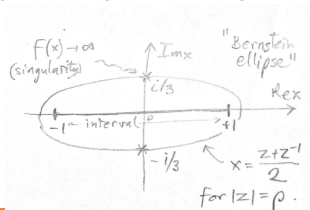 f(x) → ∞
(singularity)
Im x
"Bernstein
ellipse"
i/3
Re x
-1
interval
0
+1
-i/3
x = z+z⁻¹ / 2
for |z| = ρ.